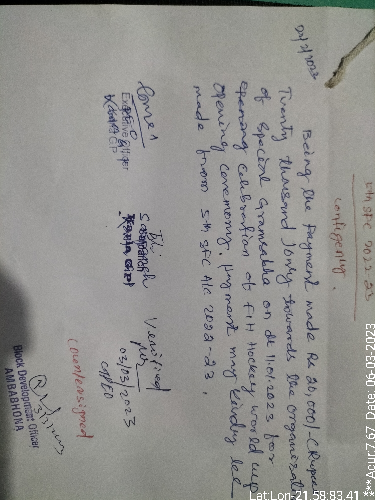 5th SFC 2022-23
contigency.
02/2/2023
Being the Payment made Rs 20,000/- (Rupees
Twenty thousand) only towards the organisat
of special Gramsabha on dt 11.01.2023 for
opening celebration of FIH Hockey world cup
opening ceremony. Payment may kindly be
made from 5th SFC A/c 2022-23.
Executive Officer
Sarpanch
Verified
03/03/2023
Countersigned
Block Development Officer
AMBABHONA
LatLon-21.58:83.41
***Acur7.67 Date: 06-03-2023